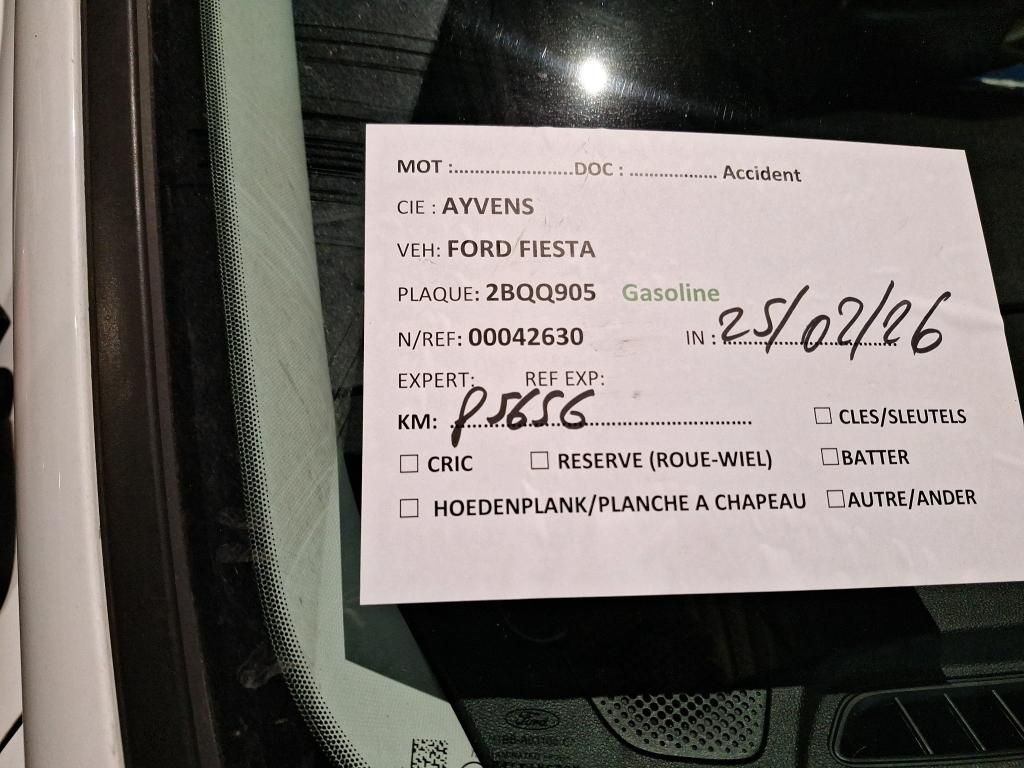 MOT :........................DOC : .................. Accident
CIE : AYVENS
VEH: FORD FIESTA
PLAQUE: 2BQQ905 Gasoline
N/REF: 00042630 IN : 25/02/26
EXPERT: REF EXP:
KM: 85656
☐ CLES/SLEUTELS
☐ CRIC ☐ RESERVE (ROUE-WIEL) ☐BATTER
☐ HOEDENPLANK/PLANCHE A CHAPEAU ☐AUTRE/ANDER
Ford